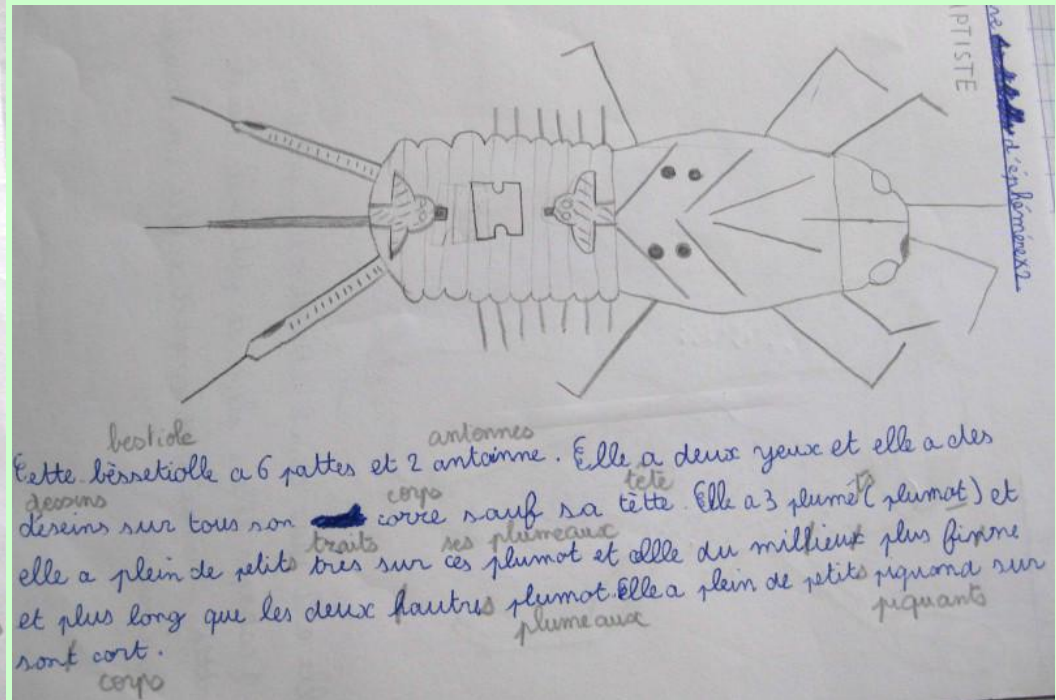 d'éphémérex2
PTISTE
bestiole antennes
Cette bèssetiolle a 6 pattes et 2 antainne. Elle a deux yeux et elle a des
dessins corps tête ts
déseins sur tous son corre sauf sa tètte. Elle a 3 plumet (plumot) et
traits ses plumeaux
elle a plein de petits tres sur ces plumot et ellle du millieux plus finne
et plus long que les deux hautres plumot. Elle a plein de petits piquand sur
plumeaux piquants
sont cort.
corps